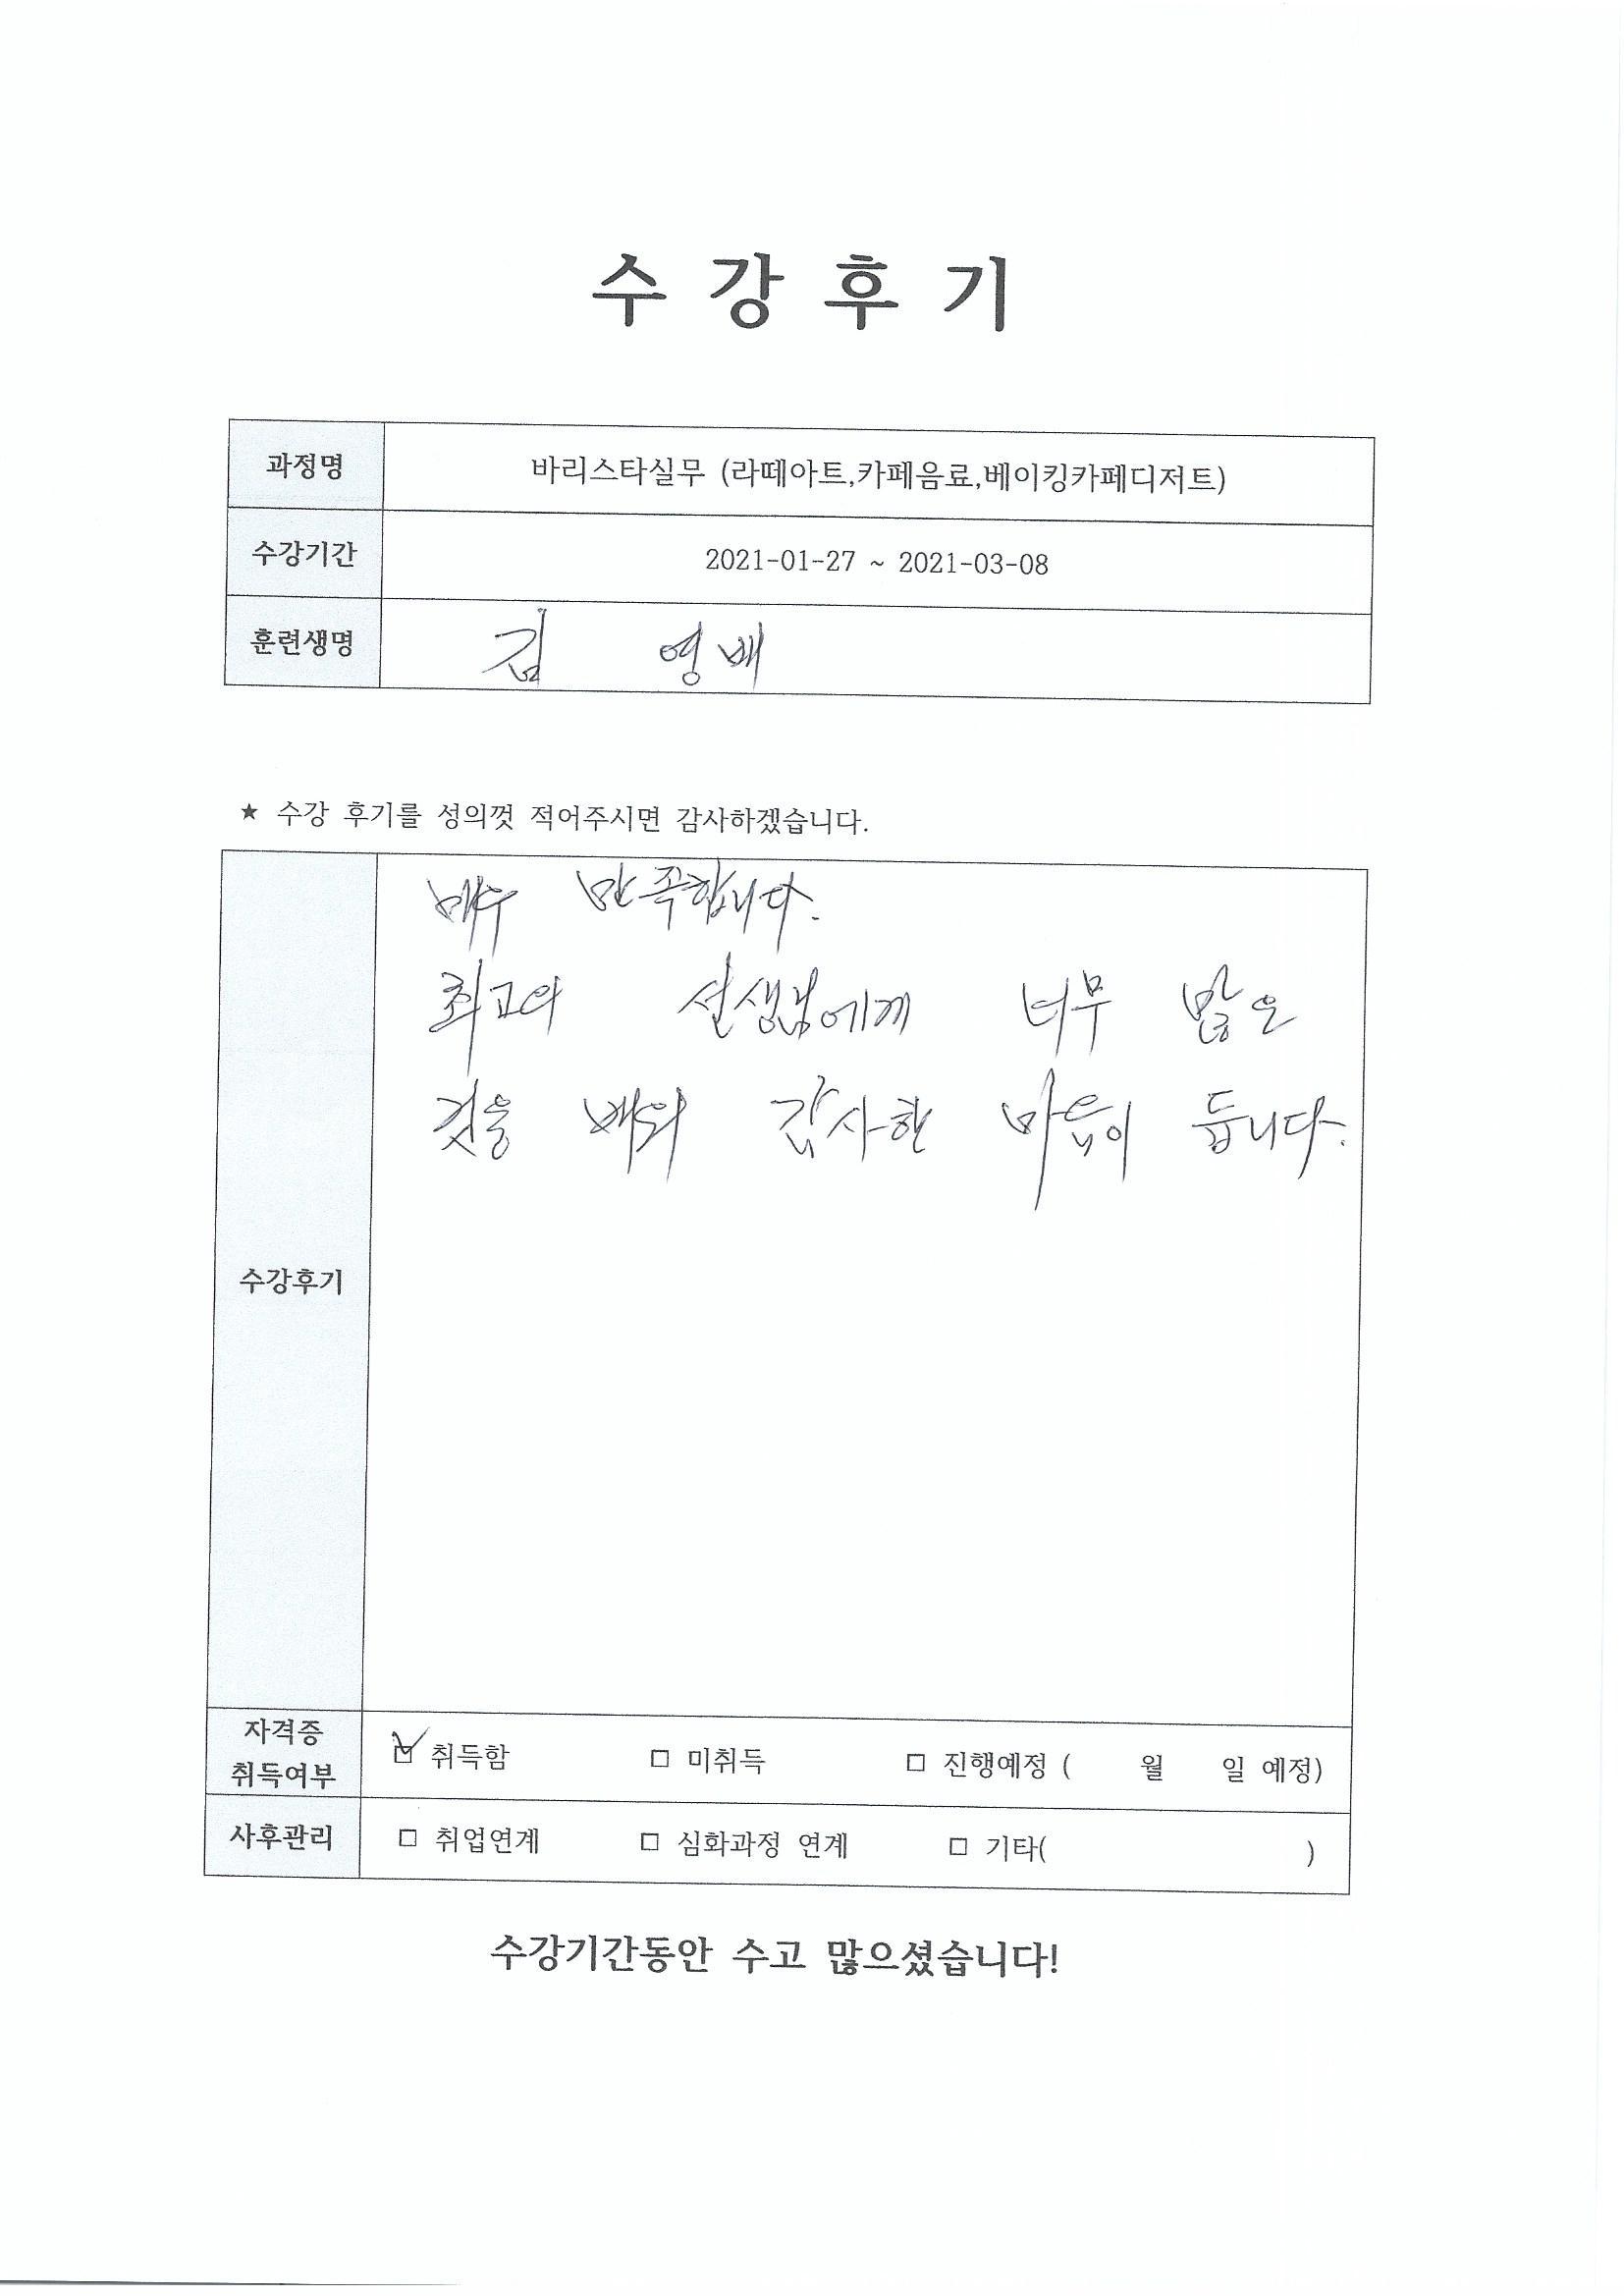 수 강 후 기
과정명 바리스타실무 (라떼아트,카페음료,베이킹카페디저트)
수강기간 2021-01-27 ~ 2021-03-08
훈련생명 김 영배
★ 수강 후기를 성의껏 적어주시면 감사하겠습니다.
매우 만족합니다.
최고의 선생님에게 너무 많은
것을 배워 감사한 마음이 듭니다.
수강후기
자격증
취득여부
☑ 취득함 □ 미취득 □ 진행예정 ( 월 일 예정)
사후관리 □ 취업연계 □ 심화과정 연계 □ 기타( )
수강기간동안 수고 많으셨습니다!